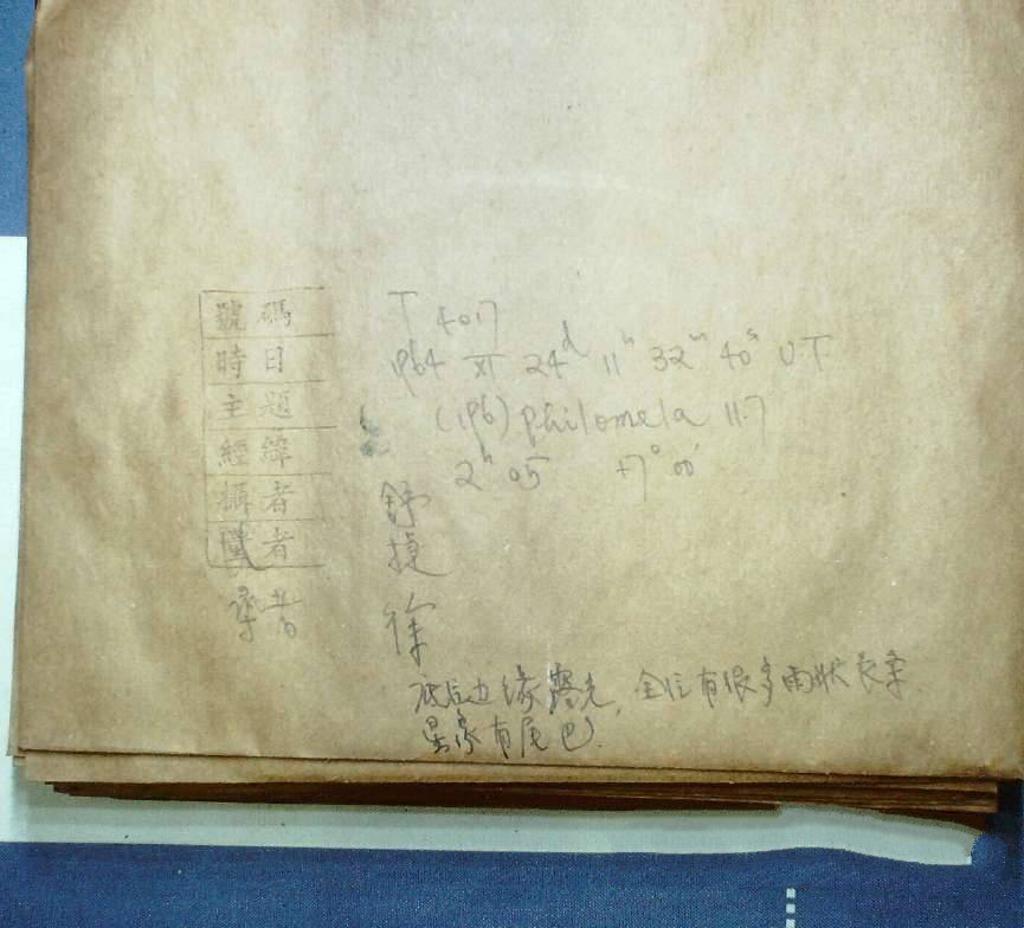 號碼 T 4017
時日 1964 XI 24d 11h 32m 40s UT
主題 (196) philomela 11.7
經緯 2h 05 +7° 00'
攝者 舒
者
者 徐
底片边缘露光, 全片有很多雨狀長条
星象有尾巴.